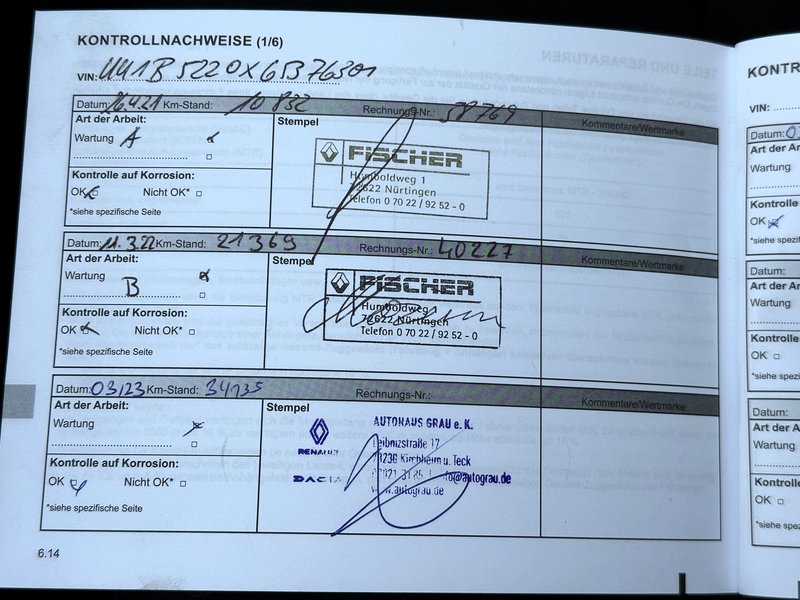 KONTROLLNACHWEISE (1/6)
VIN:
Datum: 26.4.21 Km-Stand: 10 832 Rechnungs-Nr.: 38769
Kommentare/Wertmarke
Art der Arbeit:
Wartung A
Kontrolle auf Korrosion:
OK Nicht OK*
*siehe spezifische Seite
Stempel
FISCHER
Humboldweg 1
72622 Nürtingen
Telefon 0 70 22 / 92 52 - 0
Datum: 11.3.22 Km-Stand: 21369 Rechnungs-Nr.: 40227
Kommentare/Wertmarke
Art der Arbeit:
Wartung
B
Kontrolle auf Korrosion:
OK Nicht OK*
*siehe spezifische Seite
Stempel
FISCHER
Humboldweg
72622 Nürtingen
Telefon 0 70 22 / 92 52 - 0
Datum: 03/23 Km-Stand: 34135 Rechnungs-Nr.:
Kommentare/Wertmarke
Art der Arbeit:
Wartung
Kontrolle auf Korrosion:
OK Nicht OK*
*siehe spezifische Seite
Stempel
RENAULT
DACIA
AUTOHAUS GRAU e. K.
Leibnizstraße 17
73230 Kirchheim u. Teck
info@autograu.de
www.autograu.de
6.14
KONTR
VIN:
Datum:
Art der Ar
Wartung
Kontrolle
OK
*siehe spezifi
Datum:
Art der Ar
Wartung
Kontrolle
OK
*siehe spezi
Datum:
Art der A
Wartung
Kontroll
OK
*siehe spe